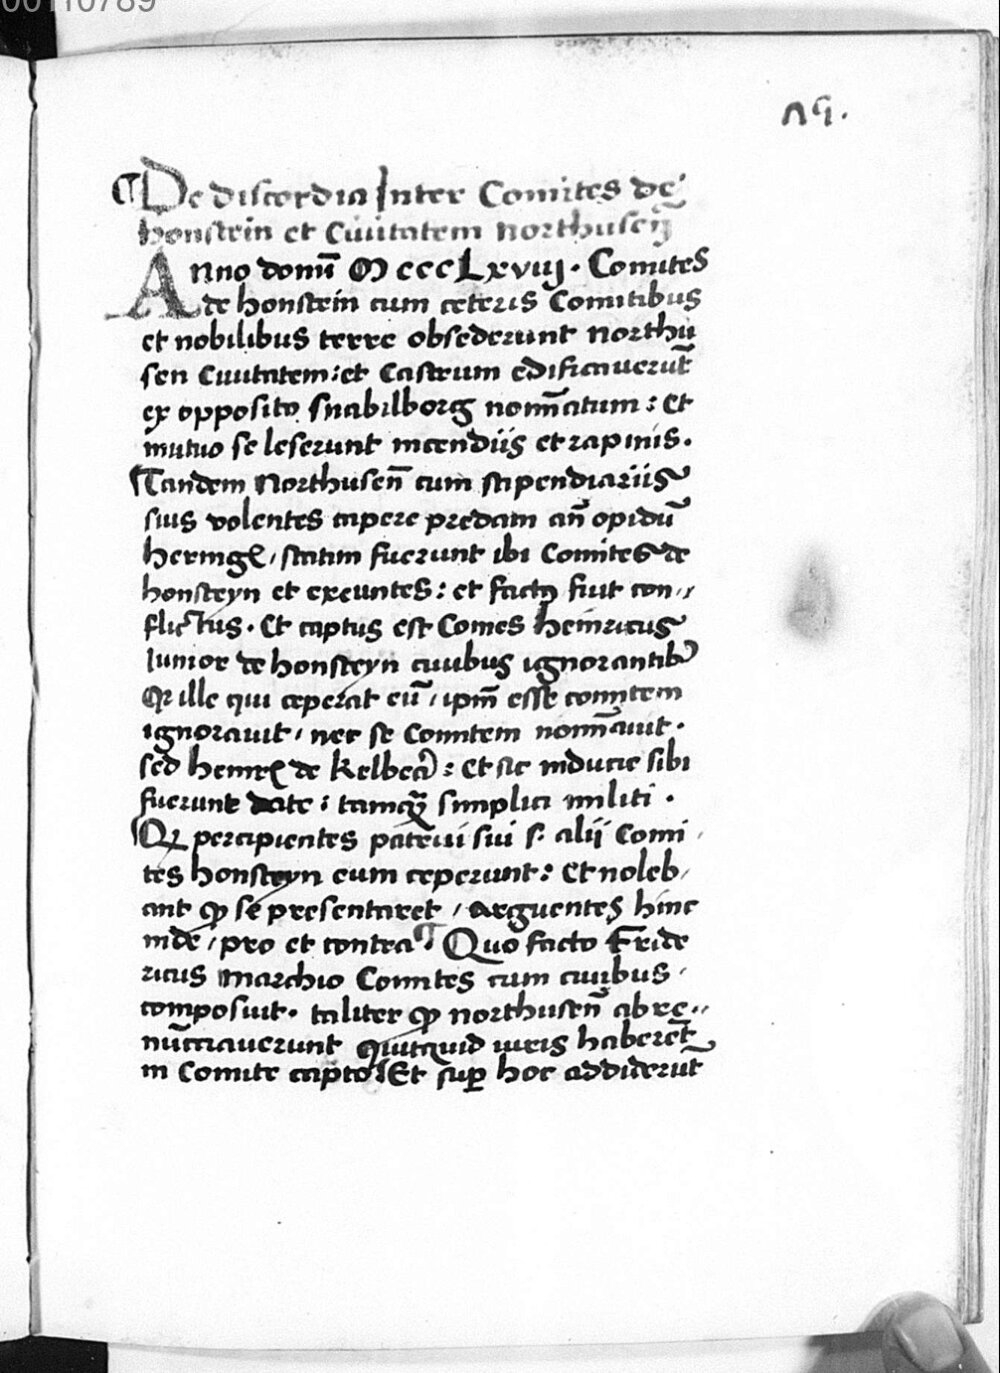 00110789
¶De discordia Inter Comites de
honstein et Ciuitatem northuseñ
Anno domī M cccLxviij. Comites
de honstein cum ceteris Comitibus
et nobilibus terre obsederunt northu
sen Ciuitatem: et Castrum edificauerūt
ex opposito snabilborg nom̄atum: Et
mutuo se leserunt incendijs et rapinis.
¶Tandem Northuseñ cum stipendiariis
suis volentes capere predam an̄ opidū
/ statim fuerunt ibi Comites de
honsteyn et exeuntes: et fuit con,,
flictus. Et captus est Comes heinricus
Iunior de honsteyn ciuibus ignorantibꝰ
Qꝛ ille qui ceperat eū / ipm̄ esse comitem
ignorauit / nec se Comitem nom̄auit.
sed de : Et sic inducie sibi
fuerunt date: tamqͣ simplici militi.
¶Qꝛ percipientes patrui sui s. alij Comi,
tes honsteyn eum ceperunt: Et noleb,
ant ꝙ se presentaret / Arguentes hinc
inde / pro et contra¶ Quo facto Fride
ricus Marchio Comites cum ciuibus,
composuit. taliter ꝙ northuseñ abre,,
nūciauerunt Quitquid iuris haberēt
in Comite capto¶Et suꝑ hoc addiderūt